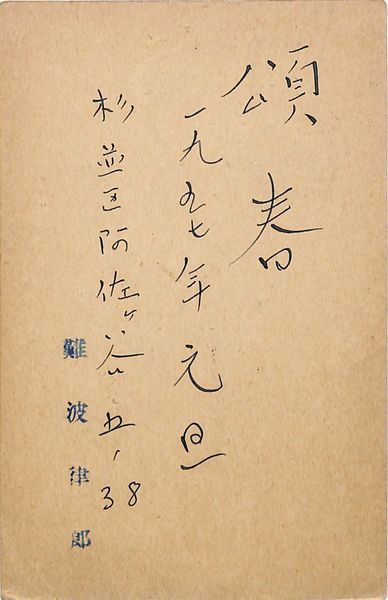 頌春
一九五七年元旦
杉並区阿佐ヶ谷五、38
難波律郎